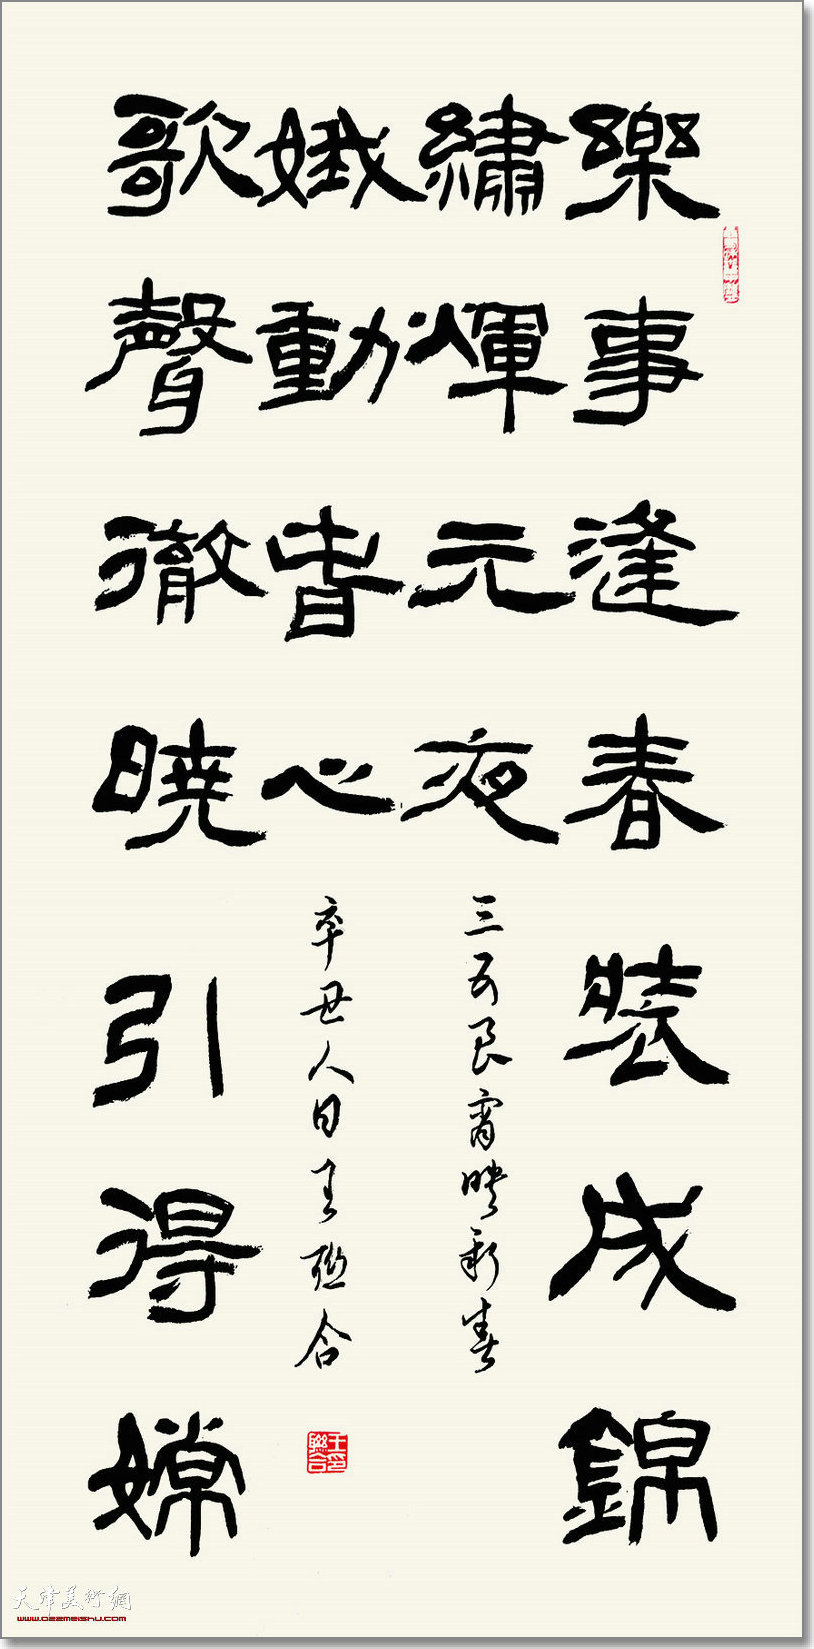 樂事逢春裝成錦
繡煇元夜
三五良宵映新春
歌聲徹曉引得嫦
娥動旾心
辛丑人日王聯合
王聯合印
天津美術網
www.022meishu.com